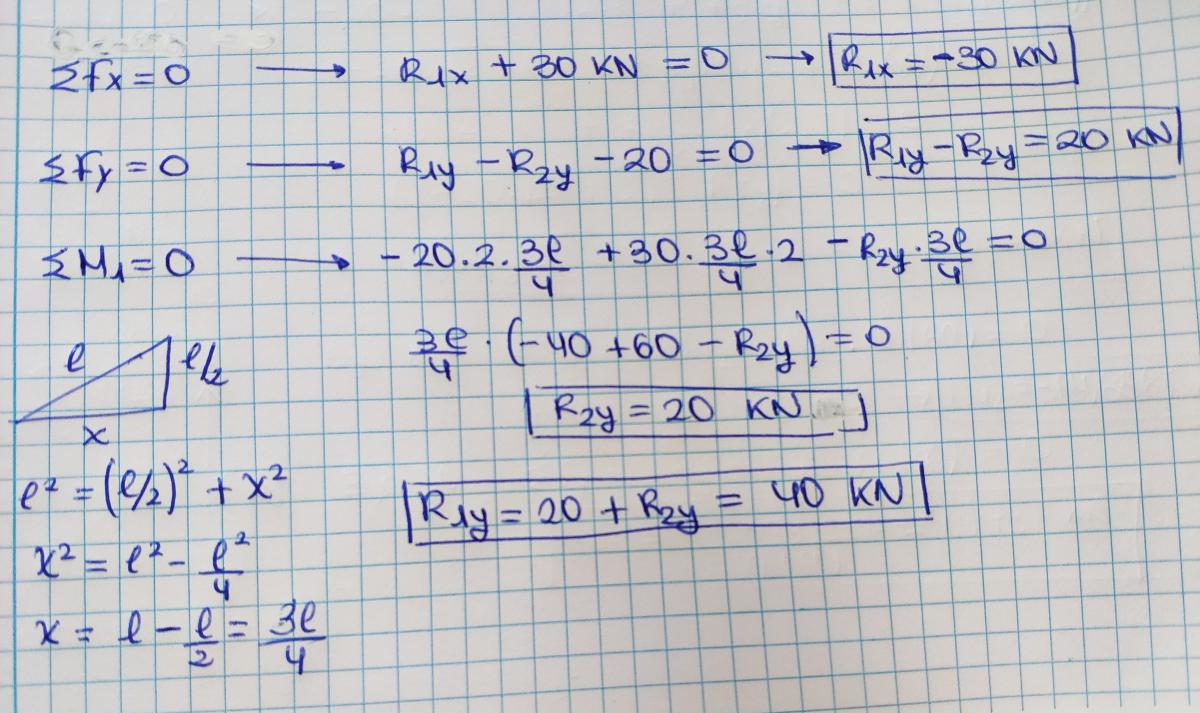 ΣFx = 0 ⟶ R1x + 30 KN = 0 → R1x = -30 KN
ΣFy = 0 ⟶ R1y - R2y - 20 = 0 → R1y - R2y = 20 KN
ΣM1 = 0 ⟶ - 20 . 2 . 3l/4 + 30 . 3l/4 . 2 - R2y . 3l/4 = 0
3l/4 . (-40 + 60 - R2y) = 0
R2y = 20 KN
R1y = 20 + R2y = 40 KN
l
l/2
x
l² = (l/2)² + x²
x² = l² - l²/4
x = l - l/2 = 3l/4